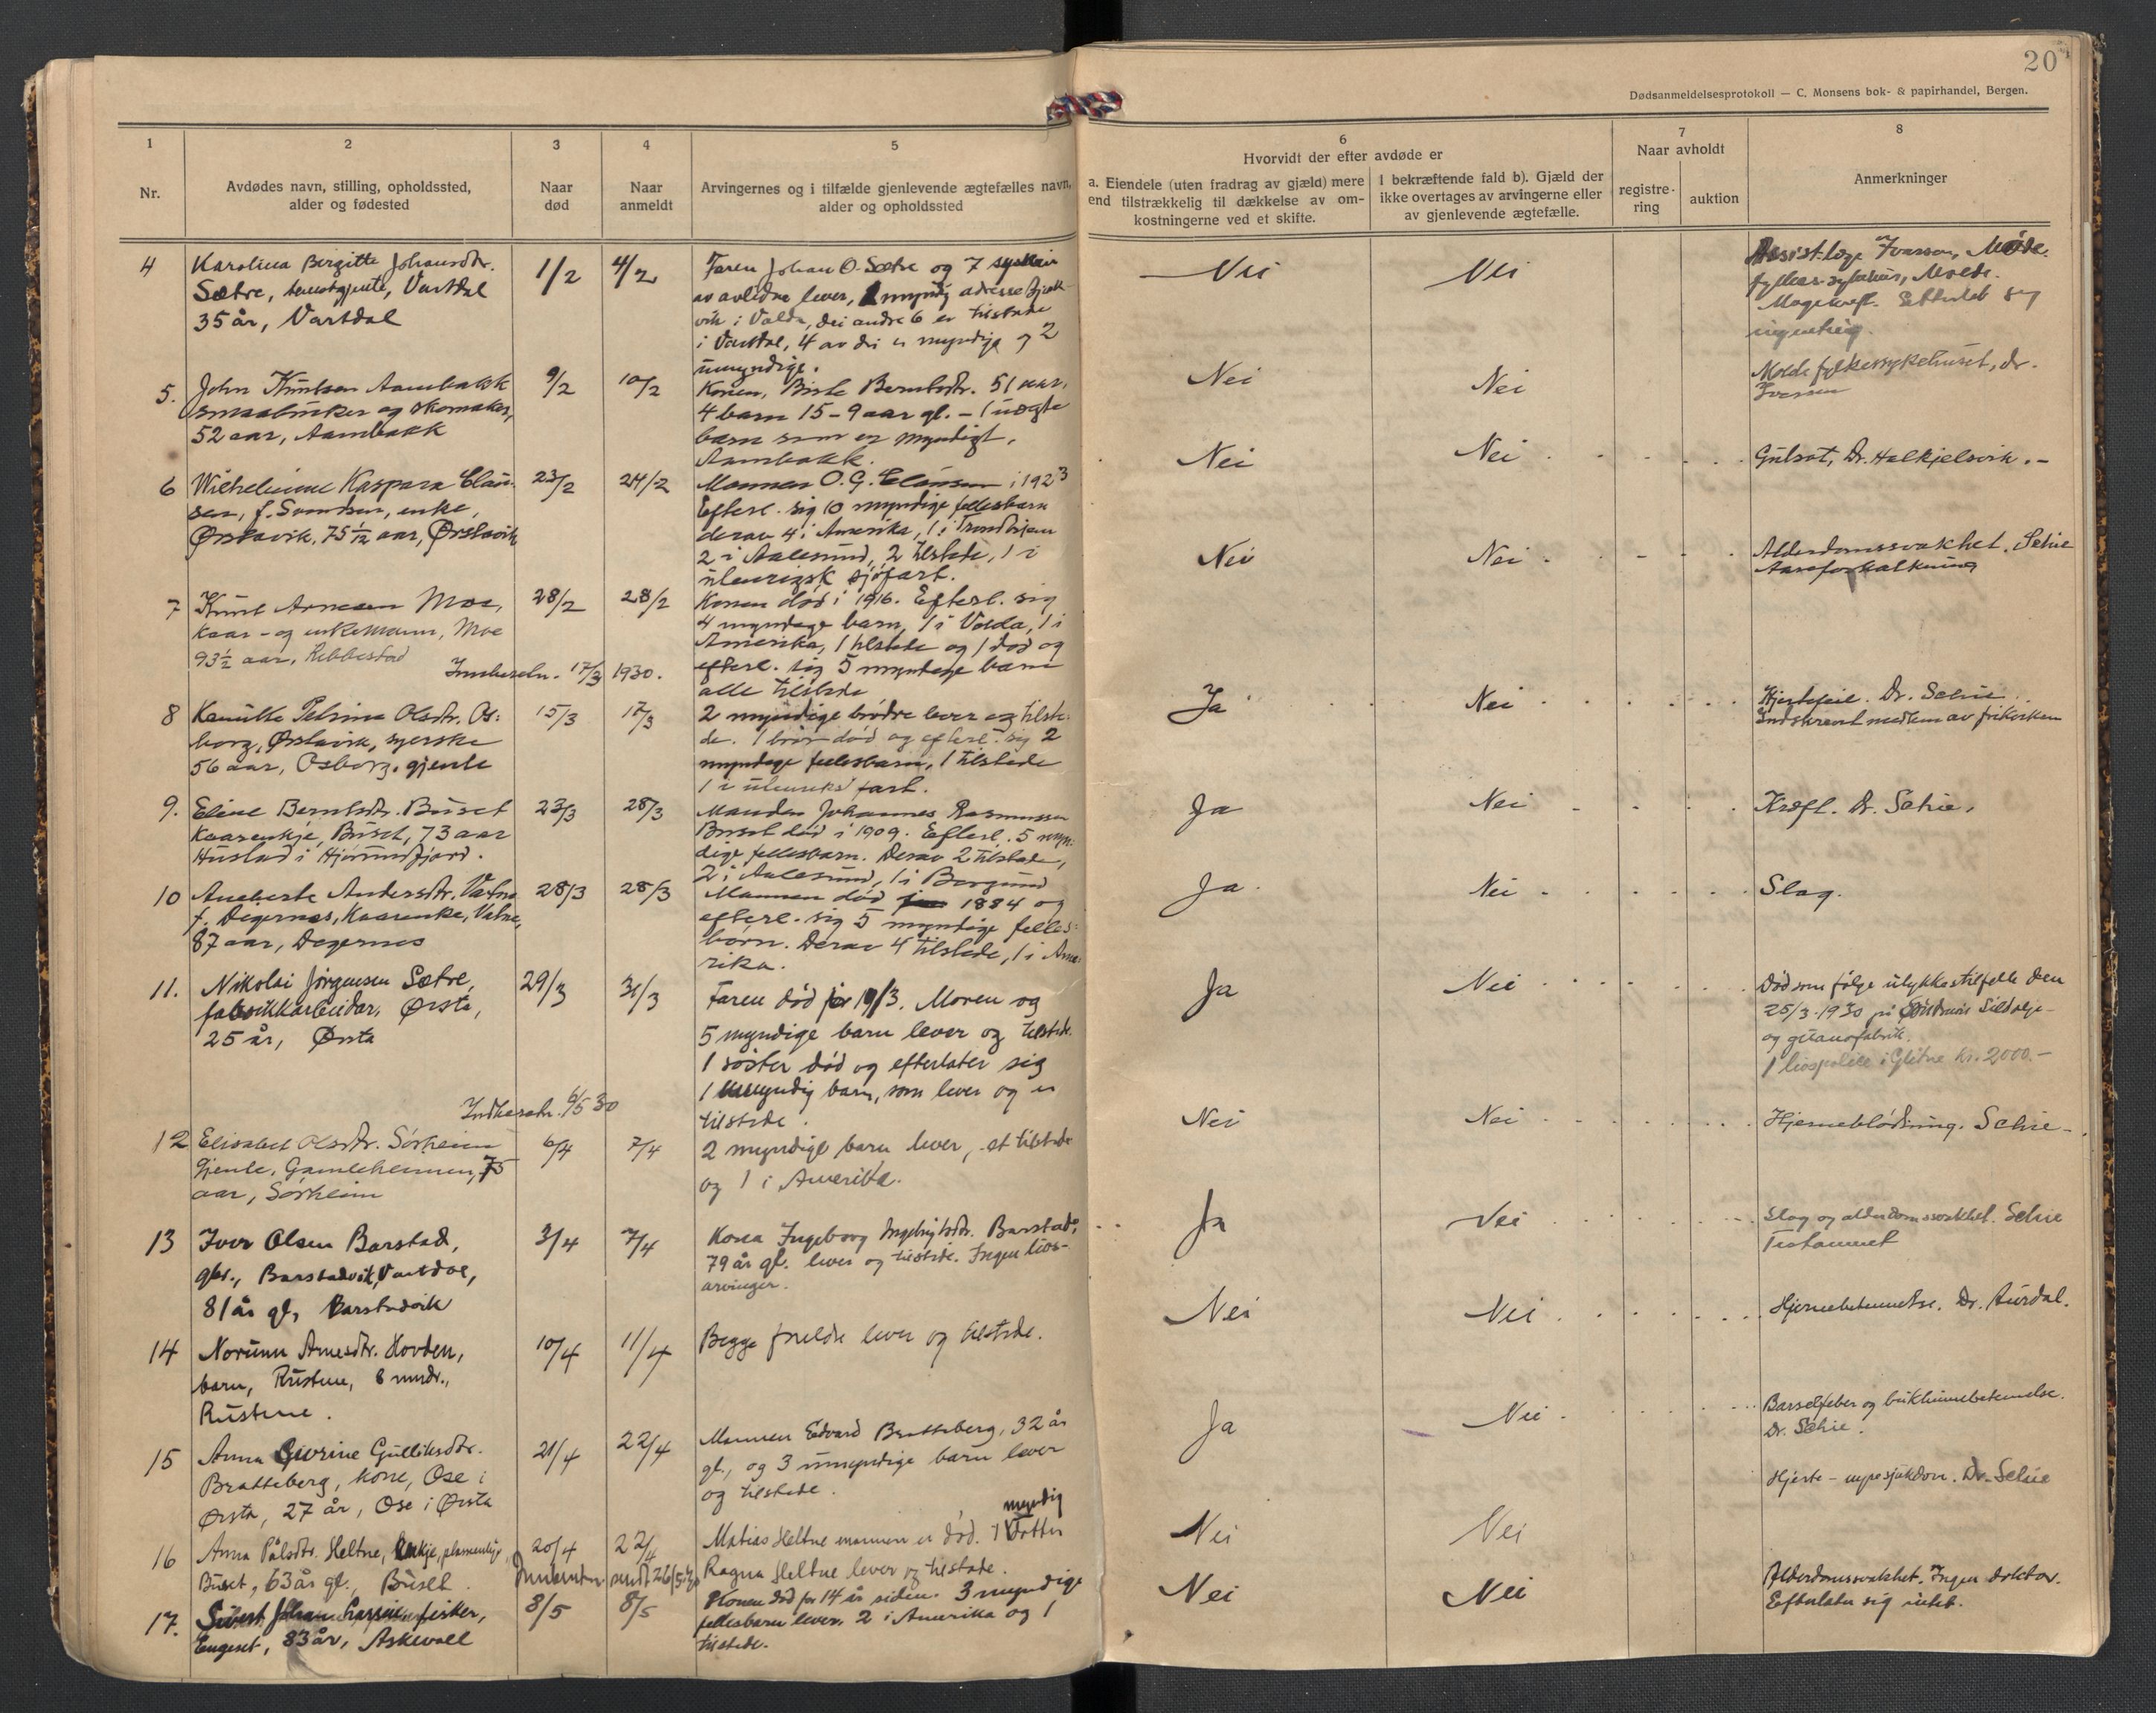 20
Dødsanmeldelsesprotokoll — C. Monsens bok- & papirhandel, Bergen.
1
2
3
4
5
6
7
8
Nr.
Avdødes navn, stilling, opholdssted,
alder og fødested
Naar
død
Naar
anmeldt
Arvingernes og i tilfælde gjenlevende ægtefælles navn,
alder og opholdssted
Hvorvidt der efter avdøde er
a. Eiendele (uten fradrag av gjæld) mere
end tilstrækkelig til dækkelse av om-
kostningerne ved et skifte.
I bekræftende fald b). Gjæld der
ikke overtages av arvingerne eller
av gjenlevende ægtefælle.
Naar avholdt
registre-
ring
auktion
Anmerkninger
4
Karolina Bergitte Johansdtr.
Sætre, Vartdal
35 år, Vartdal
1/2
4/2
Faren Johan O. Sætre og 7 sysken
av avlidne lever, 1 myndig adresse
vik i Volda, dei andre 6 er tilstade
i Vartdal, 4 av dei er myndige og 2
umyndige.
Nei
Nei
Assist.læge Ivarson, Molde
Molde.
Magekreft. Etterlet seg
ingenting.
5.
John Knutsen Aambakk
smaabruker og skomaker,
52 aar, Aambakk
9/2
10/2
Konen, Berntsdtr. 51 aar,
4 barn 15-9 aar gl. - 1 uægte
barn som er myndigt,
Aambakk.
Nei
Nei
Molde fylkessykehuset, dr.
Iversen
6
Wilhelmine Kaspara Claus-
sen, f. Svendsen, enke,
Ørstavik, 75 1/12 aar, Ørstavik
23/2
24/2
Mannen O. G. Claussen i 1923
Efterl. sig 10 myndige fellesbarn
derav 4 i Amerika, 1 i Trondhjem
2 i Aalesund, 2 tilstede, 1 i
utenrigsk sjøfart.
Nei
Nei
Gulsot, Dr. Halkjelsvik. -
7
Knut Arnesen Moe,
kaar- og enkemann, Moe
93½ aar, Ribbestad
28/2
28/2
Konen død i 1916. Efterl. sig
4 myndage barn, 1 i Volda, 1 i
Amerika, 1 tilstede og 1 død og
efterl. sig 5 myndage barn
alle tilstede
Nei
Nei
Alderdomssvakhet. Schie
Aareforkalkning
Innberetn. 17/3 1930.
8
Kamilla Petrine Olsdtr. Os-
borg, Ørstavik, syerske
56 aar, Osborg, gjente
15/3
17/3
2 myndige brødre lever og tilste-
de. 1 bror død og efterl. sig 2
myndage fellesbarn, 1 tilstede
1 i utenriks fart.
Ja
Nei
Hjertefeil. Dr. Schie.
Indskrevet medlem av frikirken
9.
Eline Berntsdtr. Buset
Kaarenkje, Buset, 73 aar
Hustad i Hjørundfjord.
23/3
28/3
Manden Johannes Rasmussen
Buset død i 1909. Efterl. 5 myn-
dige fellesbarn. Derav 2 tilstede,
2 i Aalesund, 1 i Borgund
Ja
Nei
Kræft. Dr. Schie.
10
Aneberte Andersdtr. Vatne
f. Digernes, Kaarenke, Vatne,
87 aar, Degernes
28/3
28/3
Mannen død 1884 og
efterl. sig 5 myndige felles-
børn. Derav 4 tilstede, 1 i Ame-
rika.
Ja
Nei
Slag.
11.
Nikolai Jørgensen Sætre,
fabrikkarbeider, Ørsta,
25 år, Ørsta
29/3
31/3
Faren død 1913. Moren og
5 myndige barn lever og tilstede.
1 søster død og efterlater sig
1 umyndig barn, som lever og er
tilstede.
Ja
Nei
Død som følge ulykkestilfelle den
25/3-1930 på Sildolje-
og guanofabrik.
1 livspolise i Glitne kr. 2000.-
Indberetn. 6/5 30
12
Elisabet Olsdtr. Sørheim
Gjente, Gamleheimen, 75
aar, Sørheim
6/4
7/4
2 myndige barn lever, et tilstede
og 1 i Amerika.
Nei
Nei
Hjerneblødning. Schie
13
Iver Olsen Barstad,
gbr., Barstadvik, Vartdal,
81 år gl., Barstadvik
3/4
7/4
Kona Ingeborg Ingebrigtsdtr. Barstad,
79 år gl. lever og tilstede. Ingen livs-
arvinger.
Ja
Nei
Slag og alderdomssvakhet. Schie
Testament
14
Norunn Arnesdtr. Hovden,
barn, Rustene, 8 mndr.,
Rustene.
10/4
11/4
Begge foreldre lever og tilstede.
Nei
Nei
Hjernebetennelse. Dr. Aurdal.
15
Anna Gurine Gulliksdtr.
Bratteberg, kone, Ose i
Ørsta, 27 år, Ose i Ørsta
21/4
22/4
Mannen Edvard Bratteberg, 32 år
gl., og 3 umyndige barn lever
og tilstede.
Ja
Nei
Barselfeber og bukhinnebetennelse.
Dr. Schie.
16
Anna Pålsdtr. Heltne, enkje,
Buset, 63 år gl., Buset.
20/4
22/4
Matias Heltne mannen er død. 1 myndig Datter
Ragna Heltne lever og tilstede.
Nei
Nei
Hjerte- nyresjukdom. Dr. Schie
sendt 26/5 30
17.
Sivert Johan fisker,
Engeset, 83 år, Askevoll
8/5
8/5
Konen død for 14 år siden. 3 myndige
fellesbarn lever, 2 i Amerika og 1
tilstede.
Nei
Nei
Alderdomssvakhet. Ingen doktor.
Efterlater sig intet.